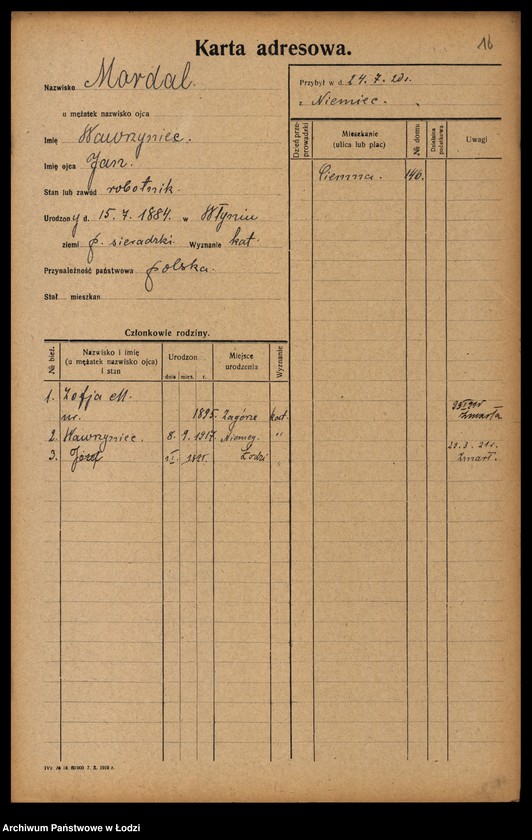 16
Karta adresowa.
Nazwisko Mardal
u mężatek nazwisko ojca
Imię Wawrzyniec.
Imię ojca Jan.
Stan lub zawód robotnik.
Urodzony d. 15.7.1884. w Włyniu
ziemi p. sieradzki. Wyznanie kat.
Przynależność państwowa polska.
Stał mieszkan
Przybył w d. 24.7.20r.
z Niemiec.
Dzień przeprowadzki
Mieszkanie
(ulica lub plac)
№ domu
Dzielnica podatkowa
Uwagi
Ciemna. 146.
Członkowie rodziny.
№ bież.
Nazwisko i imię
(u mężatek nazwisko ojca)
i stan
Urodzon
dnia mies. r.
Miejsce
urodzenia
Wyznanie
1. Zofja M.
1895. Zagórze kat.
zmarła
2. Wawrzyniec. 8. 9. 1917. Niemcy. "
29.3.21r.
3. Józef Łodzi zmarł.
7. X. 1919 r.
Archiwum Państwowe w Łodzi